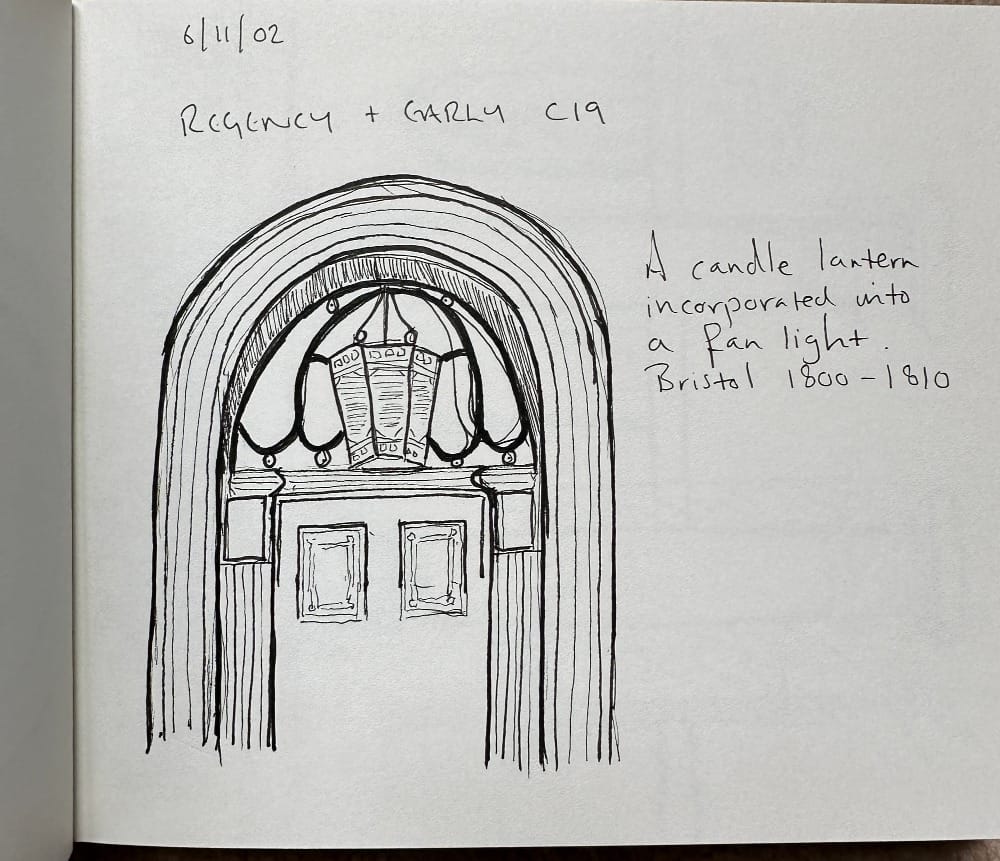 6/11/02
REGENCY + EARLY C19
A candle lantern
incorporated into
a fan light.
Bristol 1800-1810